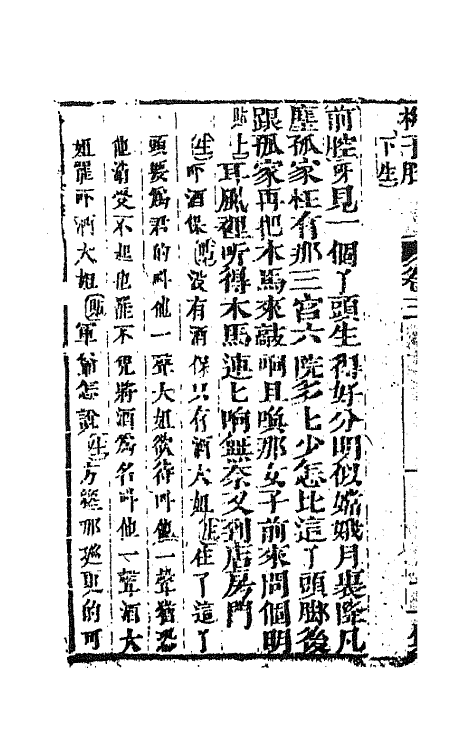 下生
卷三
前腔牙見一個丫頭生得好分明似嫦娥月裏墮凡
塵孤家枉有那三宮六院多七少怎比這丫頭脚後
跟孤家再把木馬來敲响且喚那女子前來問個明
貼上耳風裡听得木馬連七响無奈又到店房門
生吓酒保貼没有酒保只有酒大姐生住了這丫
頭要爲君的叫他一聲大姐欲待叫他一聲猶恐
他消受不起也罷不免將酒爲名叫他一聲酒大
姐罷吓酒大姐貼軍爺怎說生方纔那廵更的可